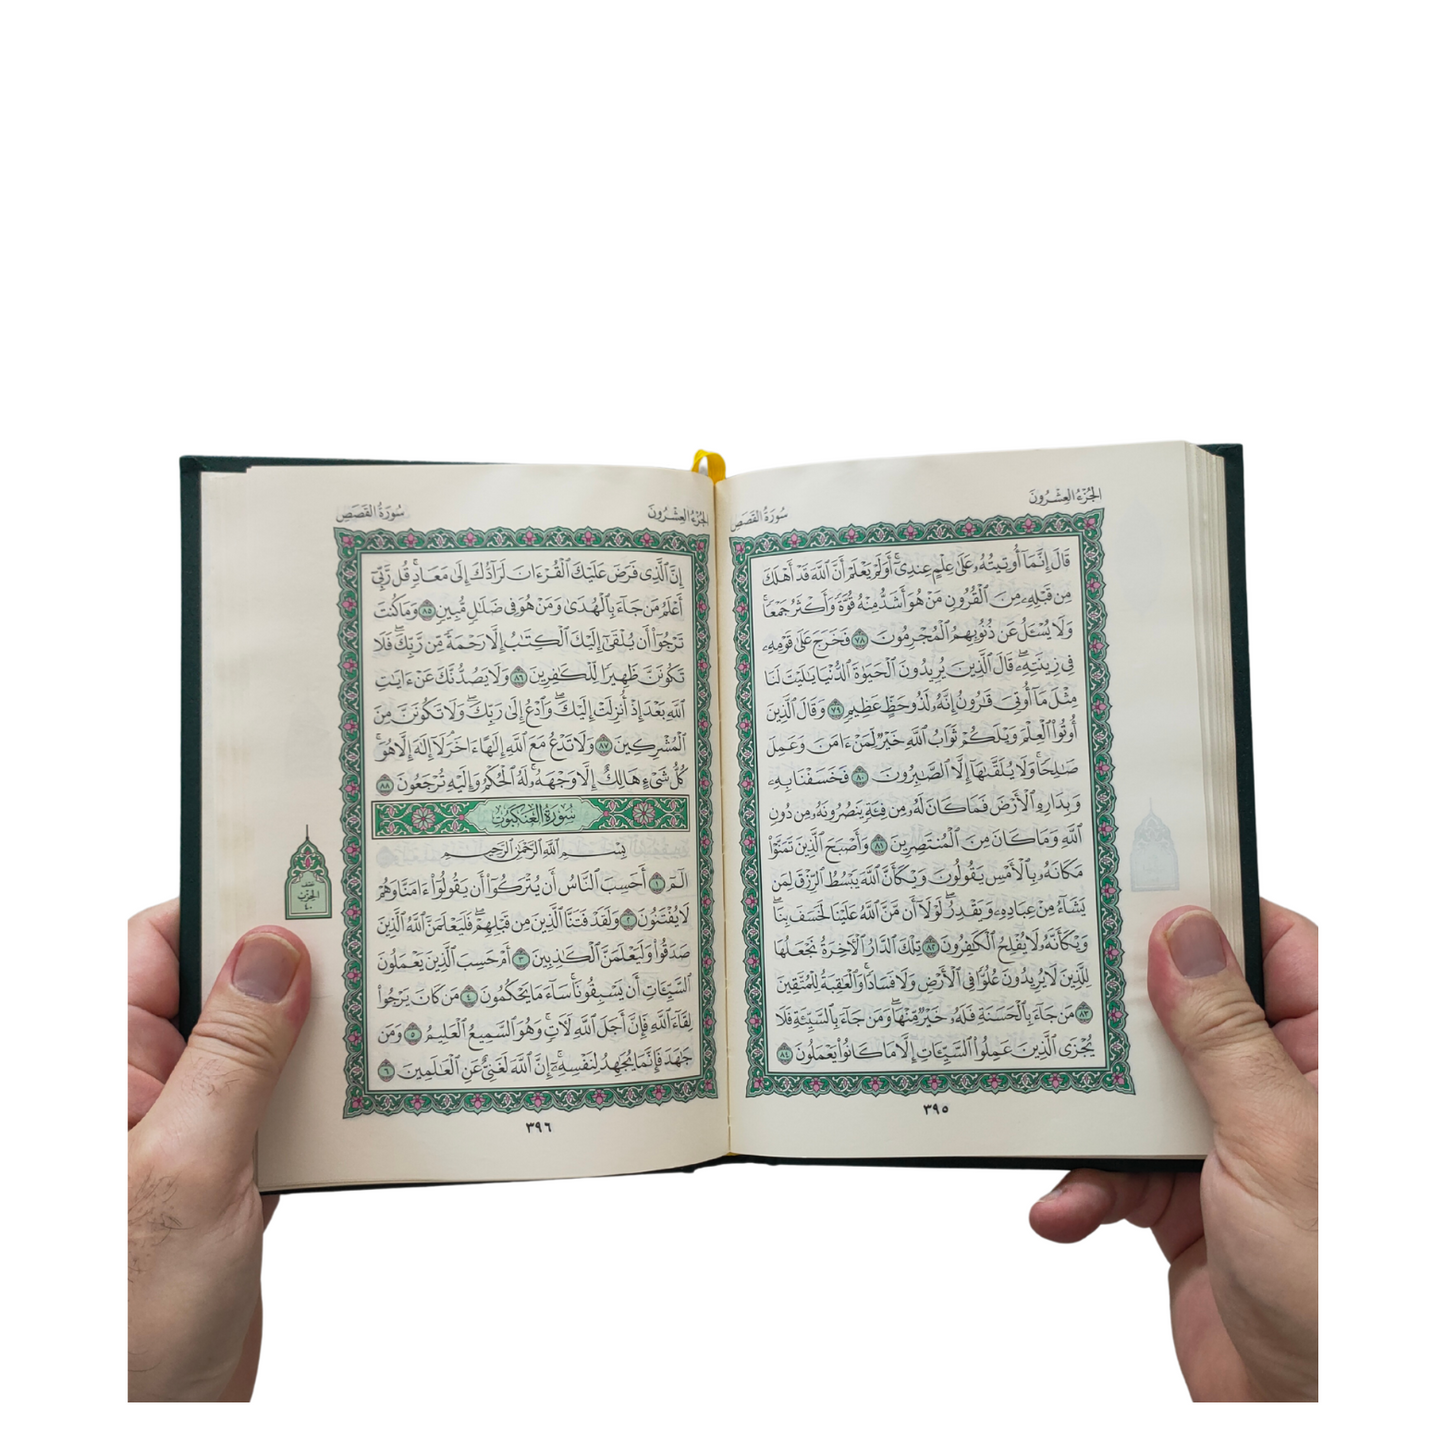 الجُزْءُ العِشْرُونَ
سُورَةُ القَصَصِ
قَالَ إِنَّمَآ أُوتِيتُهُۥ عَلَىٰ عِلْمٍ عِندِىٓۚ أَوَلَمْ يَعْلَمْ أَنَّ ٱللَّهَ قَدْ أَهْلَكَ
مِن قَبْلِهِۦ مِنَ ٱلْقُرُونِ مَنْ هُوَ أَشَدُّ مِنْهُ قُوَّةً وَأَكْثَرُ جَمْعًاۚ
وَلَا يُسْـَٔلُ عَن ذُنُوبِهِمُ ٱلْمُجْرِمُونَ ٧٨ فَخَرَجَ عَلَىٰ قَوْمِهِۦ
فِى زِينَتِهِۦۖ قَالَ ٱلَّذِينَ يُرِيدُونَ ٱلْحَيَوٰةَ ٱلدُّنْيَا يَـٰلَيْتَ لَنَا
مِثْلَ مَآ أُوتِىَ قَـٰرُونُ إِنَّهُۥ لَذُو حَظٍّ عَظِيمٍ ٧٩ وَقَالَ ٱلَّذِينَ
أُوتُوا۟ ٱلْعِلْمَ وَيْلَكُمْ ثَوَابُ ٱللَّهِ خَيْرٌ لِّمَنْ ءَامَنَ وَعَمِلَ
صَـٰلِحًاۚ وَلَا يُلَقَّىٰهَآ إِلَّا ٱلصَّـٰبِرُونَ ٨٠ فَخَسَفْنَا بِهِۦ
وَبِدَارِهِ ٱلْأَرْضَ فَمَا كَانَ لَهُۥ مِن فِئَةٍ يَنصُرُونَهُۥ مِن دُونِ
ٱللَّهِ وَمَا كَانَ مِنَ ٱلْمُنتَصِرِينَ ٨١ وَأَصْبَحَ ٱلَّذِينَ تَمَنَّوْا۟
مَكَانَهُۥ بِٱلْأَمْسِ يَقُولُونَ وَيْكَأَنَّ ٱللَّهَ يَبْسُطُ ٱلرِّزْقَ لِمَن
يَشَآءُ مِنْ عِبَادِهِۦ وَيَقْدِرُۖ لَوْلَآ أَن مَّنَّ ٱللَّهُ عَلَيْنَا لَخَسَفَ بِنَاۖ
وَيْكَأَنَّهُۥ لَا يُفْلِحُ ٱلْكَـٰفِرُونَ ٨٢ تِلْكَ ٱلدَّارُ ٱلْـَٔاخِرَةُ نَجْعَلُهَا
لِلَّذِينَ لَا يُرِيدُونَ عُلُوًّا فِى ٱلْأَرْضِ وَلَا فَسَادًاۚ وَٱلْعَـٰقِبَةُ لِلْمُتَّقِينَ
٨٣ مَن جَآءَ بِٱلْحَسَنَةِ فَلَهُۥ خَيْرٌ مِّنْهَاۖ وَمَن جَآءَ بِٱلسَّيِّئَةِ فَلَا
يُجْزَى ٱلَّذِينَ عَمِلُوا۟ ٱلسَّيِّـَٔاتِ إِلَّا مَا كَانُوا۟ يَعْمَلُونَ ٨٤
٣٩٥
الجُزْءُ العِشْرُونَ
سُورَةُ القَصَصِ
إِنَّ ٱلَّذِى فَرَضَ عَلَيْكَ ٱلْقُرْءَانَ لَرَآدُّكَ إِلَىٰ مَعَادٍۚ قُل رَّبِّىٓ
أَعْلَمُ مَن جَآءَ بِٱلْهُدَىٰ وَمَنْ هُوَ فِى ضَلَـٰلٍ مُّبِينٍ ٨٥ وَمَا كُنتَ
تَرْجُوٓا۟ أَن يُلْقَىٰٓ إِلَيْكَ ٱلْكِتَـٰبُ إِلَّا رَحْمَةً مِّن رَّبِّكَۖ فَلَا
تَكُونَنَّ ظَهِيرًا لِّلْكَـٰفِرِينَ ٨٦ وَلَا يَصُدُّنَّكَ عَنْ ءَايَـٰتِ
ٱللَّهِ بَعْدَ إِذْ أُنزِلَتْ إِلَيْكَۖ وَٱدْعُ إِلَىٰ رَبِّكَۖ وَلَا تَكُونَنَّ مِنَ
ٱلْمُشْرِكِينَ ٨٧ وَلَا تَدْعُ مَعَ ٱللَّهِ إِلَـٰهًا ءَاخَرَۘ لَآ إِلَـٰهَ إِلَّا هُوَۚ
كُلُّ شَىْءٍ هَالِكٌ إِلَّا وَجْهَهُۥۚ لَهُ ٱلْحُكْمُ وَإِلَيْهِ تُرْجَعُونَ ٨٨
سُورَةُ العَنكَبُوتِ
بِسْمِ ٱللَّهِ ٱلرَّحْمَـٰنِ ٱلرَّحِيمِ
الٓمٓ ١ أَحَسِبَ ٱلنَّاسُ أَن يُتْرَكُوٓا۟ أَن يَقُولُوٓا۟ ءَامَنَّا وَهُمْ
لَا يُفْتَنُونَ ٢ وَلَقَدْ فَتَنَّا ٱلَّذِينَ مِن قَبْلِهِمْۖ فَلَيَعْلَمَنَّ ٱللَّهُ ٱلَّذِينَ
صَدَقُوا۟ وَلَيَعْلَمَنَّ ٱلْكَـٰذِبِينَ ٣ أَمْ حَسِبَ ٱلَّذِينَ يَعْمَلُونَ
ٱلسَّيِّـَٔاتِ أَن يَسْبِقُونَاۚ سَآءَ مَا يَحْكُمُونَ ٤ مَن كَانَ يَرْجُوا۟
لِقَآءَ ٱللَّهِ فَإِنَّ أَجَلَ ٱللَّهِ لَـَٔاتٍۚ وَهُوَ ٱلسَّمِيعُ ٱلْعَلِيمُ ٥ وَمَن
جَـٰهَدَ فَإِنَّمَا يُجَـٰهِدُ لِنَفْسِهِۦٓۚ إِنَّ ٱللَّهَ لَغَنِىٌّ عَنِ ٱلْعَـٰلَمِينَ ٦
نصف
الحزب
٤٠
٣٩٦